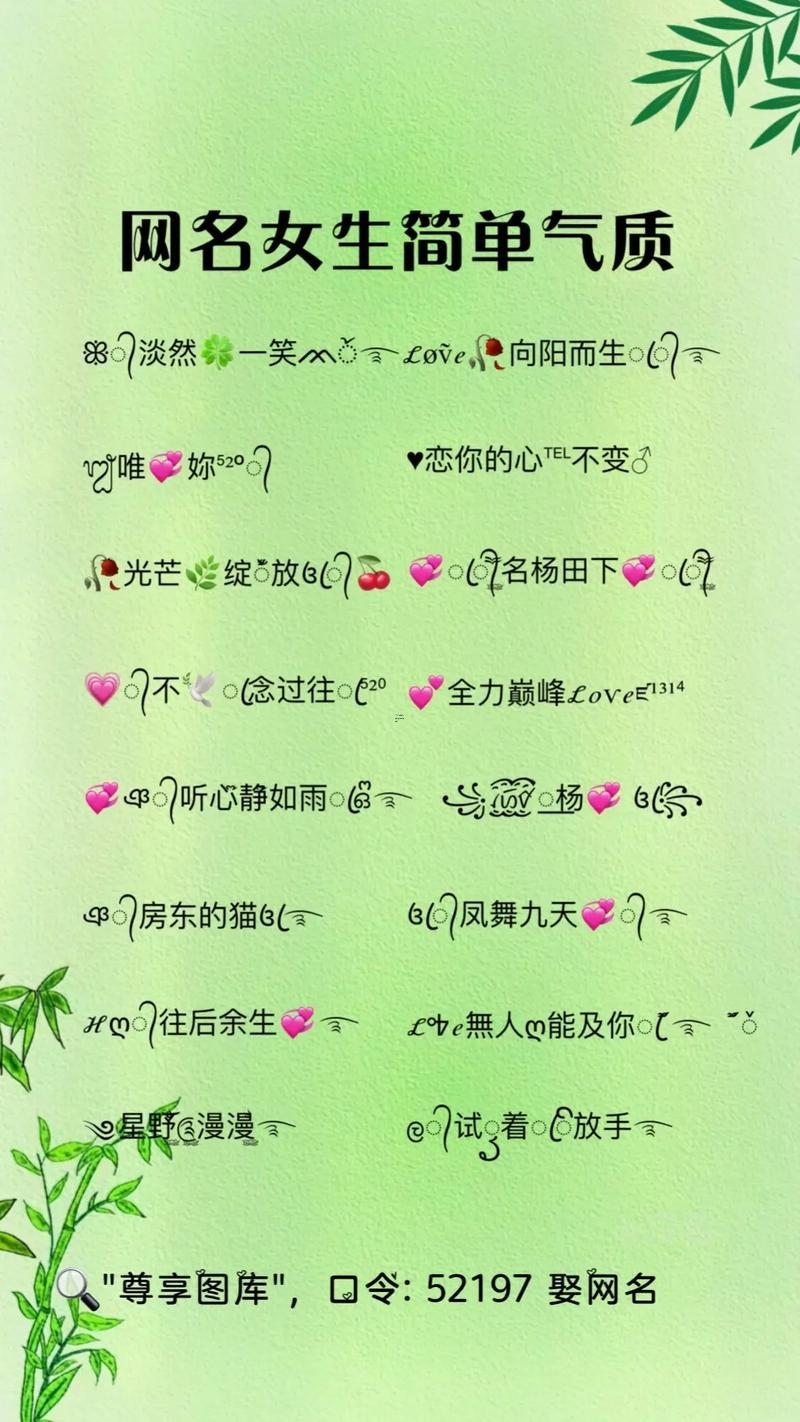 网名女生简单气质
ꕤ᭄淡然🍀一笑ᨐ̌࿐ ℒøṽℯ🥀向阳而生ꦿ᭄࿐
ღ᭄唯💞妳⁵²⁰᭄ ♥恋你的心℡不变♂
🥀光芒🌿绽放ঔ᭄🍒 💞ꦿ᭄名杨田下💞ꦿ᭄
💗᭄不🕊念过往ꦿ⁵²⁰ 💕全力巅峰ℒℴѵℯ¹³¹⁴
💞ঞ᭄听心静如雨ꦿ࿐ ꧁杨💞ঔৣ꧂
ঞ᭄房东的猫ঔ࿐ ঔ᭄凤舞九天💞᭄࿐
ℋღ᭄往后余生💞࿐ ℒ℘ℯ無人ღ能及你࿐
༄星野漫漫࿐ ᭄试着放手࿐
🔍"尊享图库"，口令: 52197 娶网名